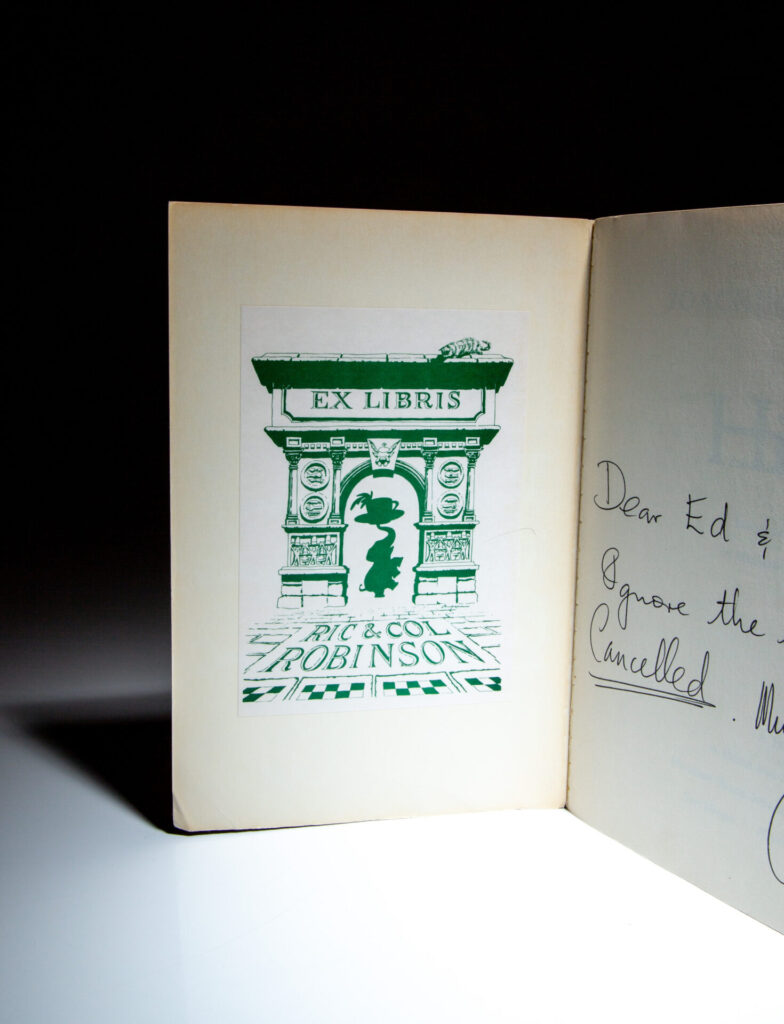 EX LIBRIS
RIC & COL
ROBINSON
Dear Ed &
Ignore the
Cancelled.